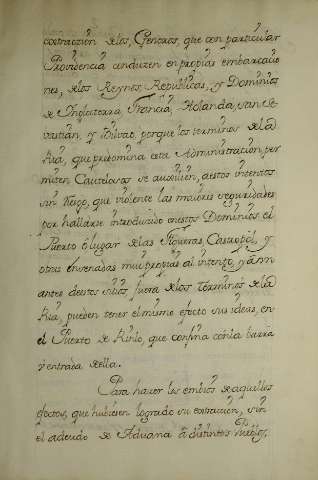 extracción delos Generos, que con particular
Providencia conduzen en propias embarcacio
nes, delos Reynos, Republicas, y Dominios
de Inglaterra, Francia, Holanda, San Se
vastian, y Bilvao, porque los terminos dela
Ria, que predomina esta Administración, per
miten Cautelosos se auxilien, a estos intentos
sin riesgo, que violente las maiores seguridades
por hallarse introducido en estos Dominios el
Puerto ó lugar de las Figueras, Castropol, y
otras ensenadas mui propias al intento, y aun
antes destos sitios fuera delos terminos dela
Ria, pueden tener el mismo efecto sus ideas, en
el Puerto de Rinlo, que confina con la barra
y entrada della.
Para hacer los embios de aquellos
efectos, que hubiesen logrado su extracción, sin
el adeudo de Aduana á distintos Pueblos,